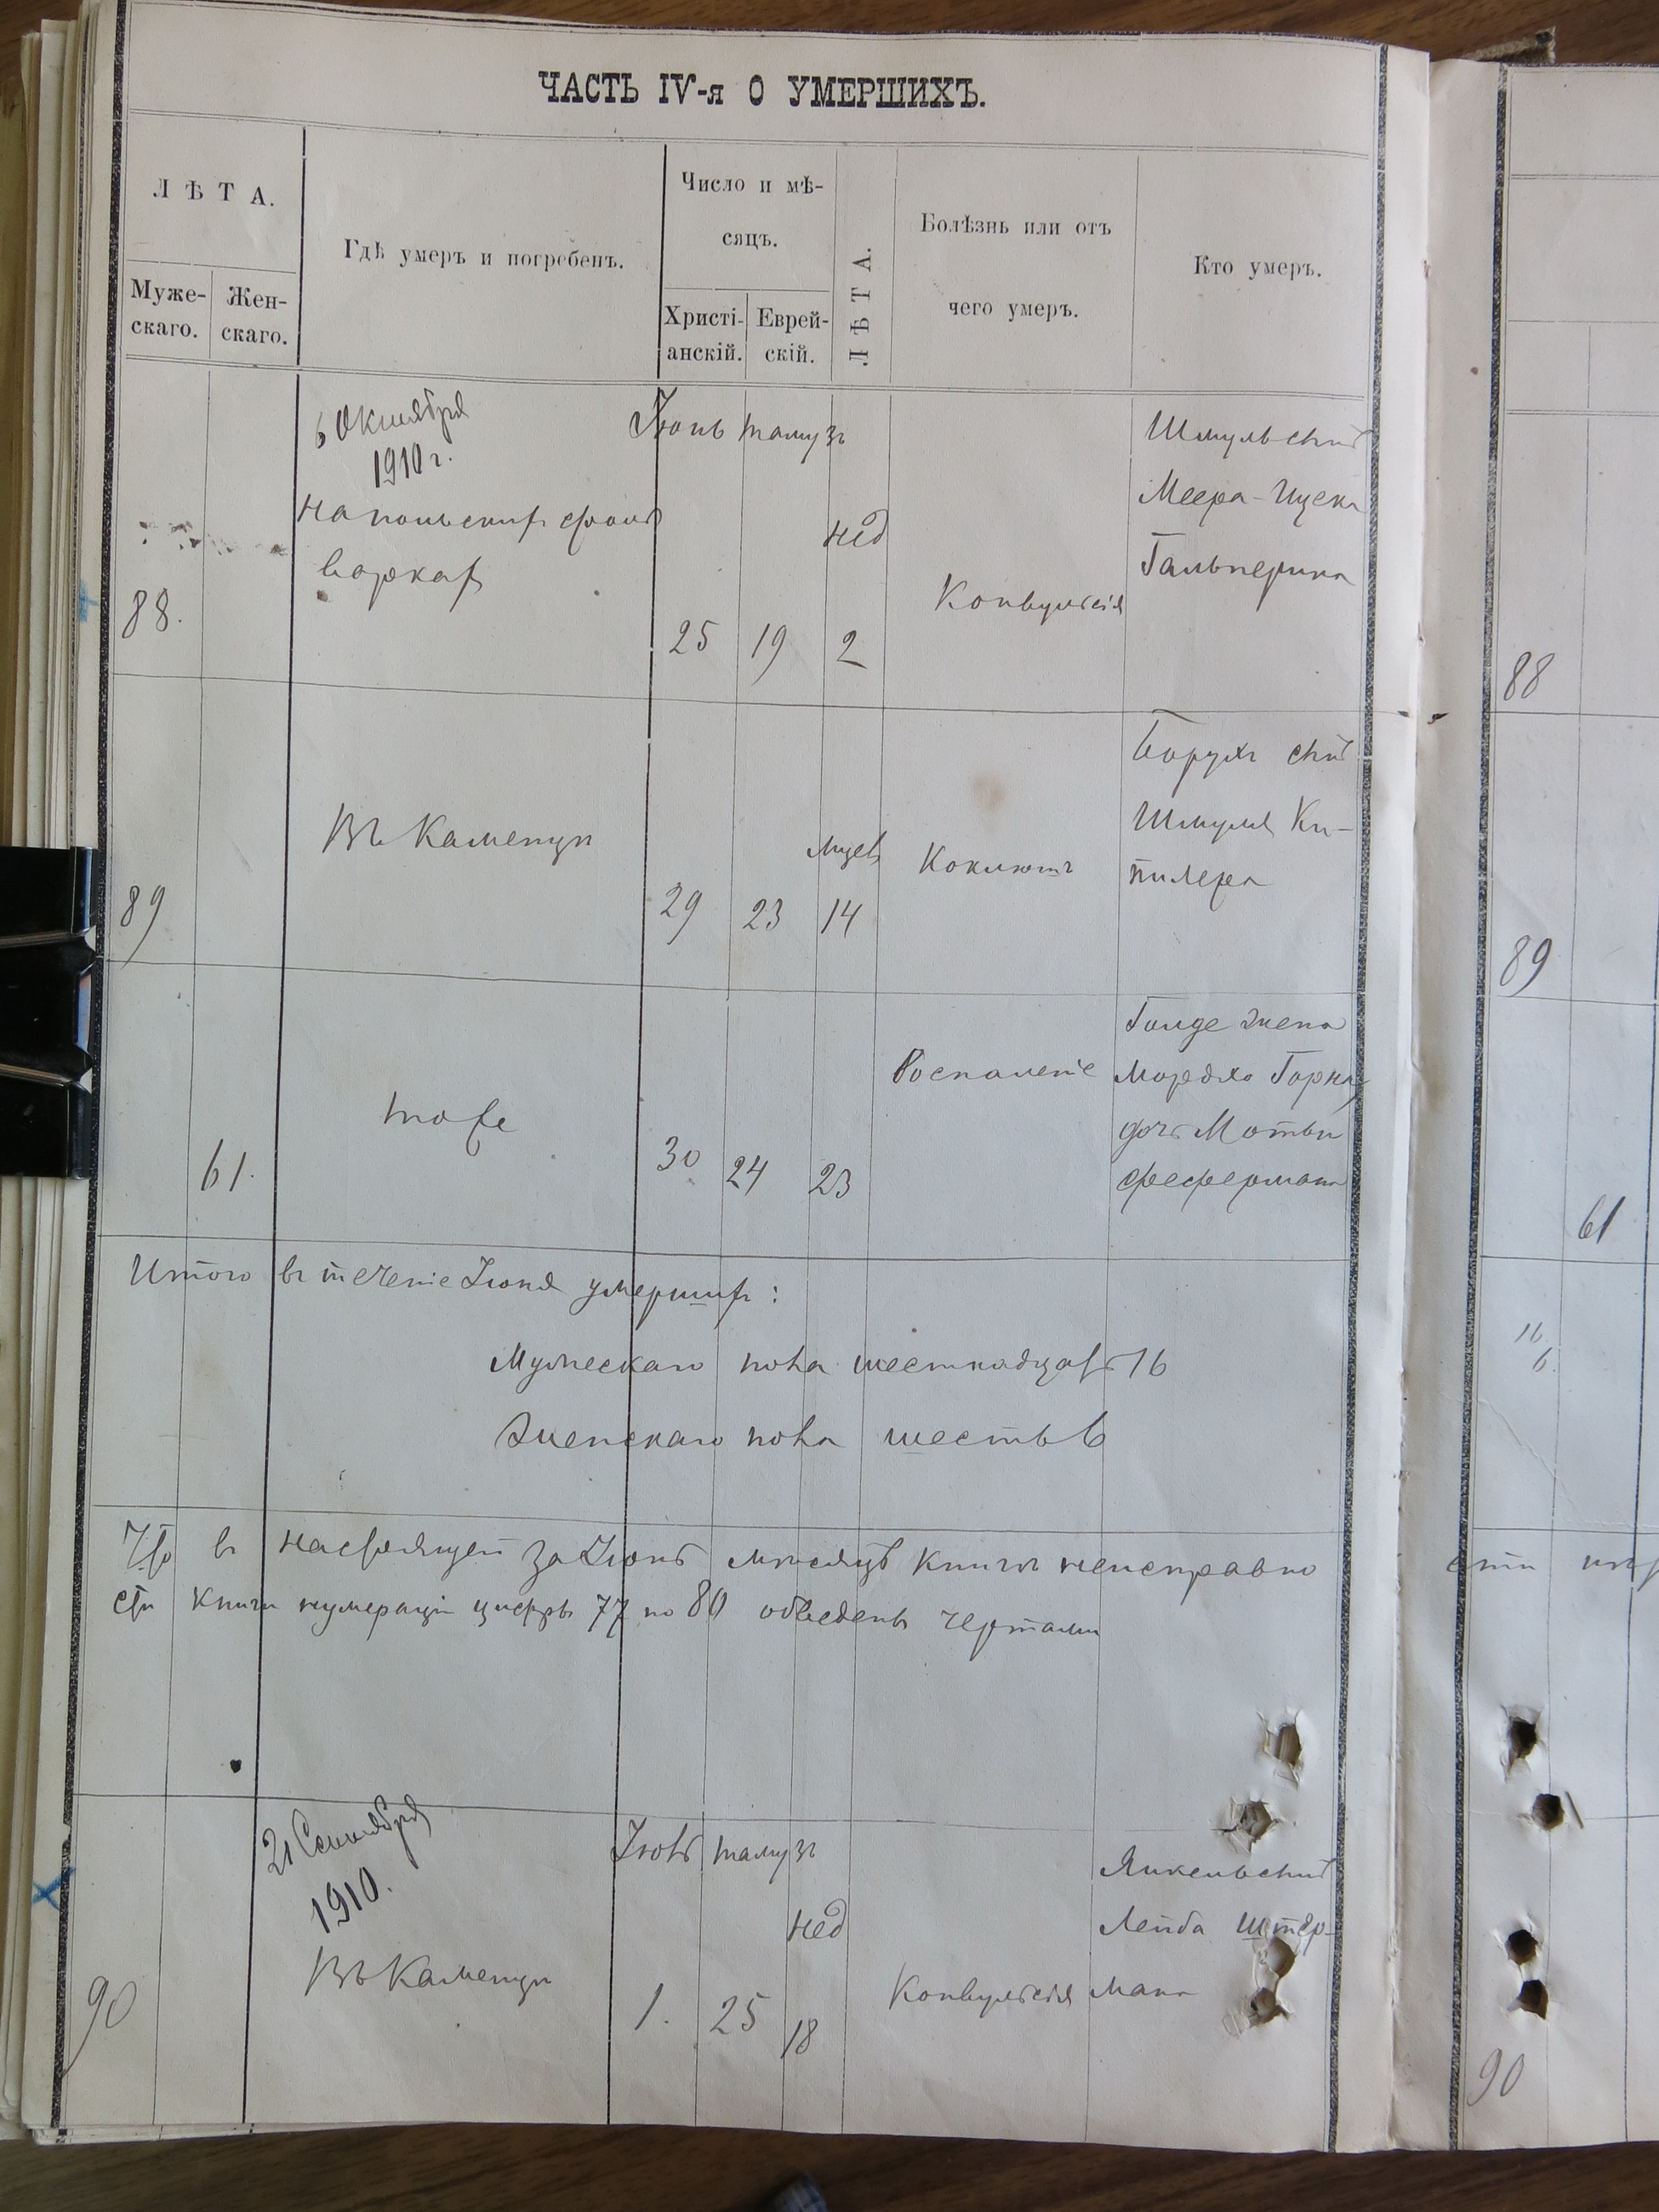 ЧАСТЬ IV-я О УМЕРШИХЪ.
ЛѢТА.
Муже-
скаго.
Жен-
скаго.
Гдѣ умеръ и погребенъ.
Число и мѣ-
сяцъ.
Христі-
анскій.
Еврей-
скій.
ЛѢТА.
Болѣзнь или отъ
чего умеръ.
Кто умеръ.
6 Октября
1910 г.
Іюнь тамузъ
88.
на польских фоль
варках
25
19
нед
2
Конвульсія
Шмуль сынъ
Меера-Ицека
Гальперина
89
Въ Каменцѣ
29
23
мцев
14
Коклюшъ
Борухъ сынъ
Шмуля Ки-
61.
тоже
30
24
23
Воспаленіе
Голде жена
Мордко
дочь Мотьи
Фефермана
Итого въ теченіе Іюня умерших:
Мужескаго пола шестнадцать 16
Женскаго пола шесть 6
Что въ настоящей за Іюнь мѣсяцъ книгѣ неисправно
сти книги нумераціи цифръ 77 по 80 обведенъ чертами
21 Сентября
1910.
Іюль тамузъ
90
Въ Каменцѣ
1.
25
нед
18
Конвульсія
Янкель сынъ
Лейба Штер-
мана
88
89
61
16
6.
90